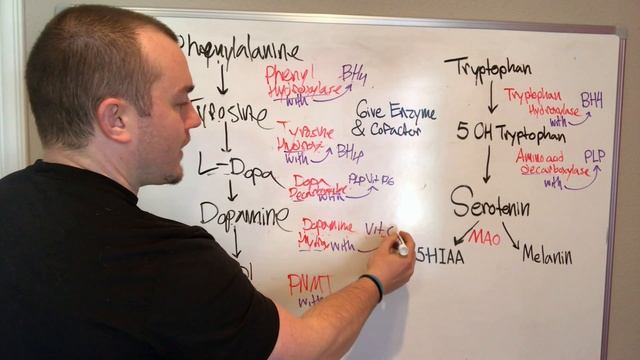 Phenylalanine
Phenyl
Hydroxylase
with
BH4
Tyrosine
Give Enzyme
& Cofactor
Tyrosine
Hydroxy
with
BH4
L-Dopa
Dopa
Decarboxylase
with
PLP Vit B6
Dopamine
Dopamine
with
Vit C
PNMT
with
Tryptophan
Tryptophan
Hydroxylase
with
BH4
5 OH Tryptophan
Amino acid
decarboxylase
with
PLP
Serotonin
MAO
5HIAA
Melanin